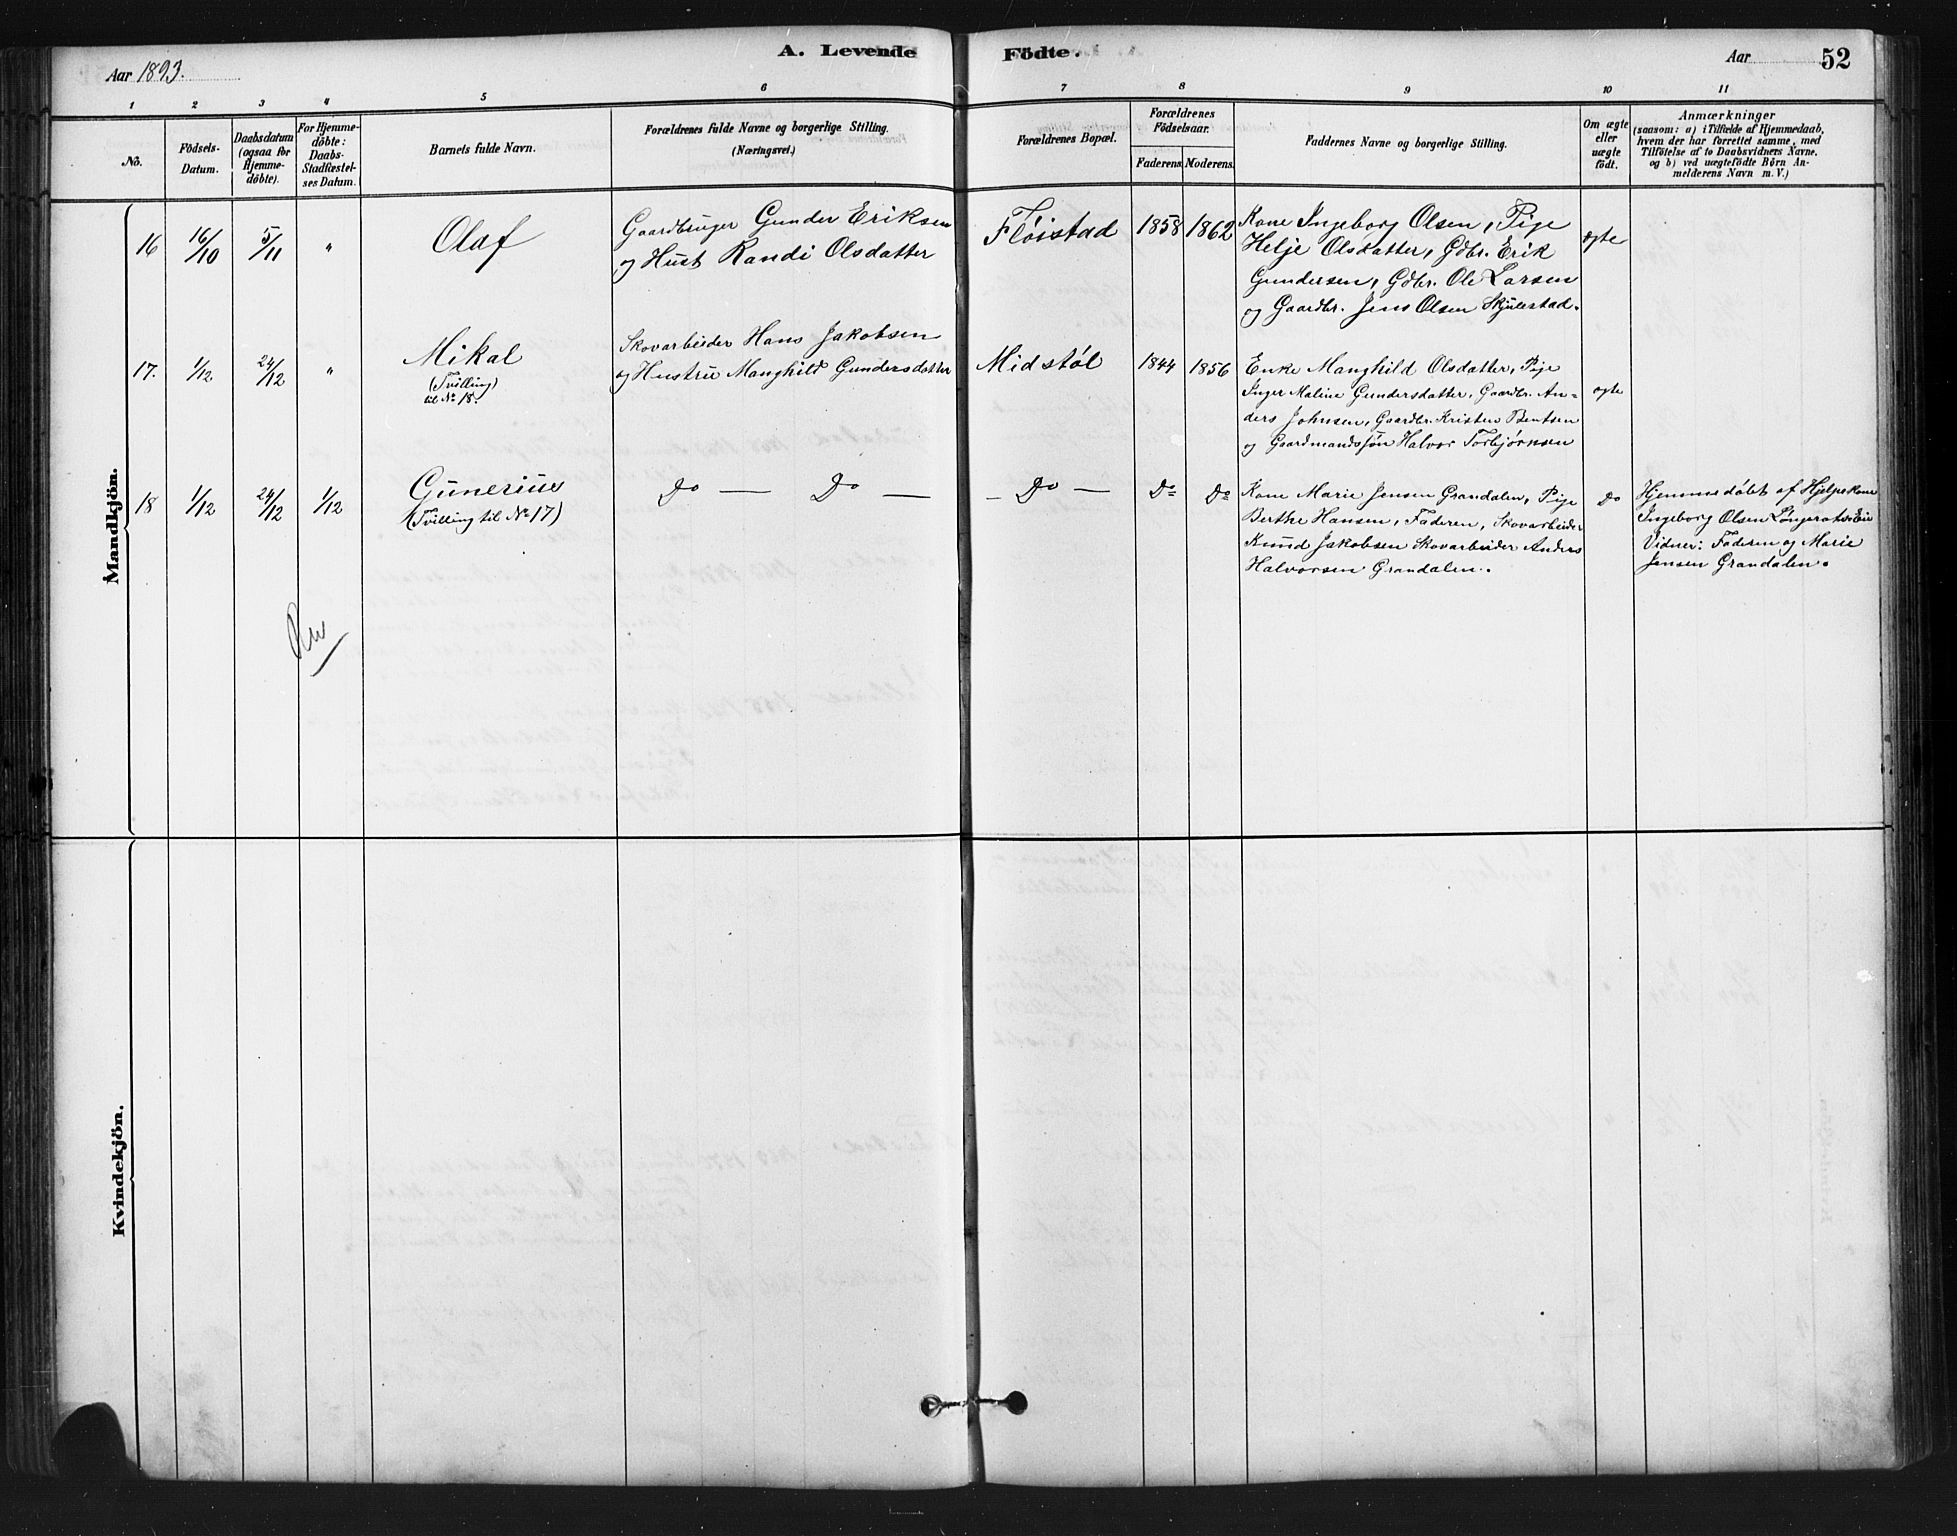 Aar 1893.
A. Levende Födte.
Aar
52
1 2 3 4 5 6 7 8 9 10 11
No.
Födsels-
Datum.
Daabsdatum
(ogsaa for
Hjemme-
döbte).
For Hjemme-
döbte:
Daabs-
Stadfæstel-
ses Datum.
Barnets fulde Navn.
Forældrenes fulde Navne og borgerlige Stilling.
(Næringsvei.)
Forældrenes Bopæl.
Forældrenes
Födselsaar.
Faderens. Moderens.
Faddernes Navne og borgerlige Stilling.
Om ægte
eller
uægte
födt.
Anmærkninger
(saasom: a) i Tilfælde af Hjemmedaab,
hvem der har forrettet samme, med
Tilföielse af to Daabsvidners Navne,
og b) ved uægtefödte Börn An-
melderens Navn m. V.)
Mandkjön.
16 16/10 5/11 "
Olaf
Gaardbruger Gunder Eriksen
og Hust Randi Olsdatter
Fløistad
1858 1862
Kone Ingeborg Olsen, Pige
Helje Olsdatter, Gdbr. Erik
Gundersen, Gdbr. Ole Larsen
og Gaardbr. Jens Olsen Skjulestad.
ægte
17. 1/12 24/12 "
Mikal
(Tvilling)
til No 18.
Skovarbeider Hans Jakobsen
og Hustru Manghild Gundersdatter
Midstøl
1844 1856
Enke Manghild Olsdatter, Pige
Inger Maline Gundersdatter, Gaardbr. An=
ders Johnsen, Gaardbr. Kristen Bentsen
og Gaardmandssøn Halvor Torbjørnsen
ægte
18 1/12 24/12 1/12
Gunerius
(Tvilling til No 17)
Do — Do —
— Do —
Do Do
Kone Marie Jensen Grandalen, Pige
Berthe Hansen, Faderen, Skovarbeider
Knud Jakobsen Skovarbeider Anders
Halvorsen Grandalen.
Do
Hjemmedøbt af Hjelpekone
Ingeborg Olsen
Vidner: Faderen og Marie
Jensen Grandalen.
Kvindekjön.